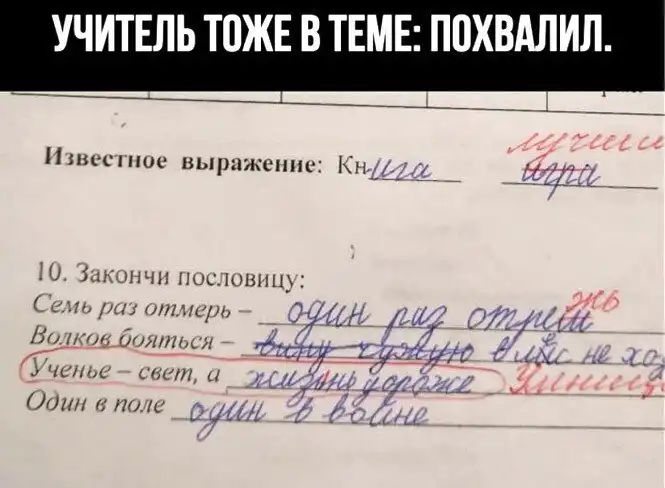 УЧИТЕЛЬ ТОЖЕ В ТЕМЕ: ПОХВАЛИЛ.
лучший
Известное выражение: Книга игра
10. Закончи пословицу:
Семь раз отмерь – один раз отреш жь
Волков бояться – в лес не хо
Ученье – свет, а жизнь дороже Умница
Один в поле один в войне